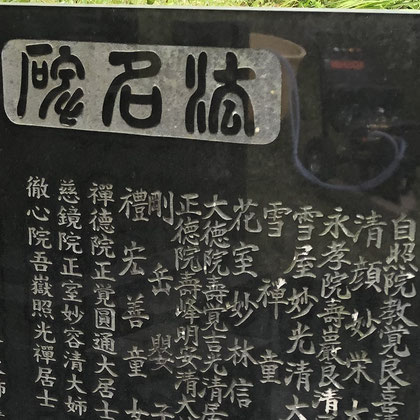 法名碑
自照院教覚良喜
清顔妙栄
永孝院壽嚴良清
雪屋妙光清大
雪禅童
花室妙林信
大徳院壽覚吉光清居
正徳院壽峰明安清大
剛岳嬰子
禮宏善童女
禪德院正覚圓通大居士
慈鏡院正室妙容清大姉
徹心院吾嶽照光禪居士